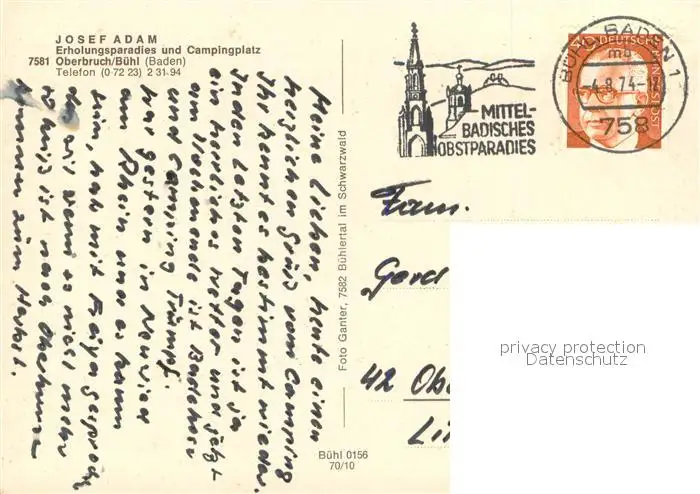 JOSEF ADAM
Erholungsparadies und Campingplatz
7581 Oberbruch/Bühl (Baden)
Telefon (0 72 23) 2 31-94
Meine Lieben, heute einen
herzlichen Gruß vom Camping
Ihr kennt es bestimmt wieder.
In den letzten Tagen ist ja
ein herrliches Wetter und jetzt
am Wochenende ist Badehose
und Camping Trumpf.
War gestern in
am Rhein und es kaum
sein, hab mit gesproche
wenn es nicht mehr
ist nach
kommen zum Herbst.
Foto Ganter, 7582 Bühlertal im Schwarzwald
Bühl 0156
70/10
MITTEL-
BADISCHES
OBSTPARADIES
BÜHL, BADEN 1
mc
-4.8.74-12
758
DEUTSCHE
Fam.
Gerd
42 Obe
Li
privacy protection
Datenschutz